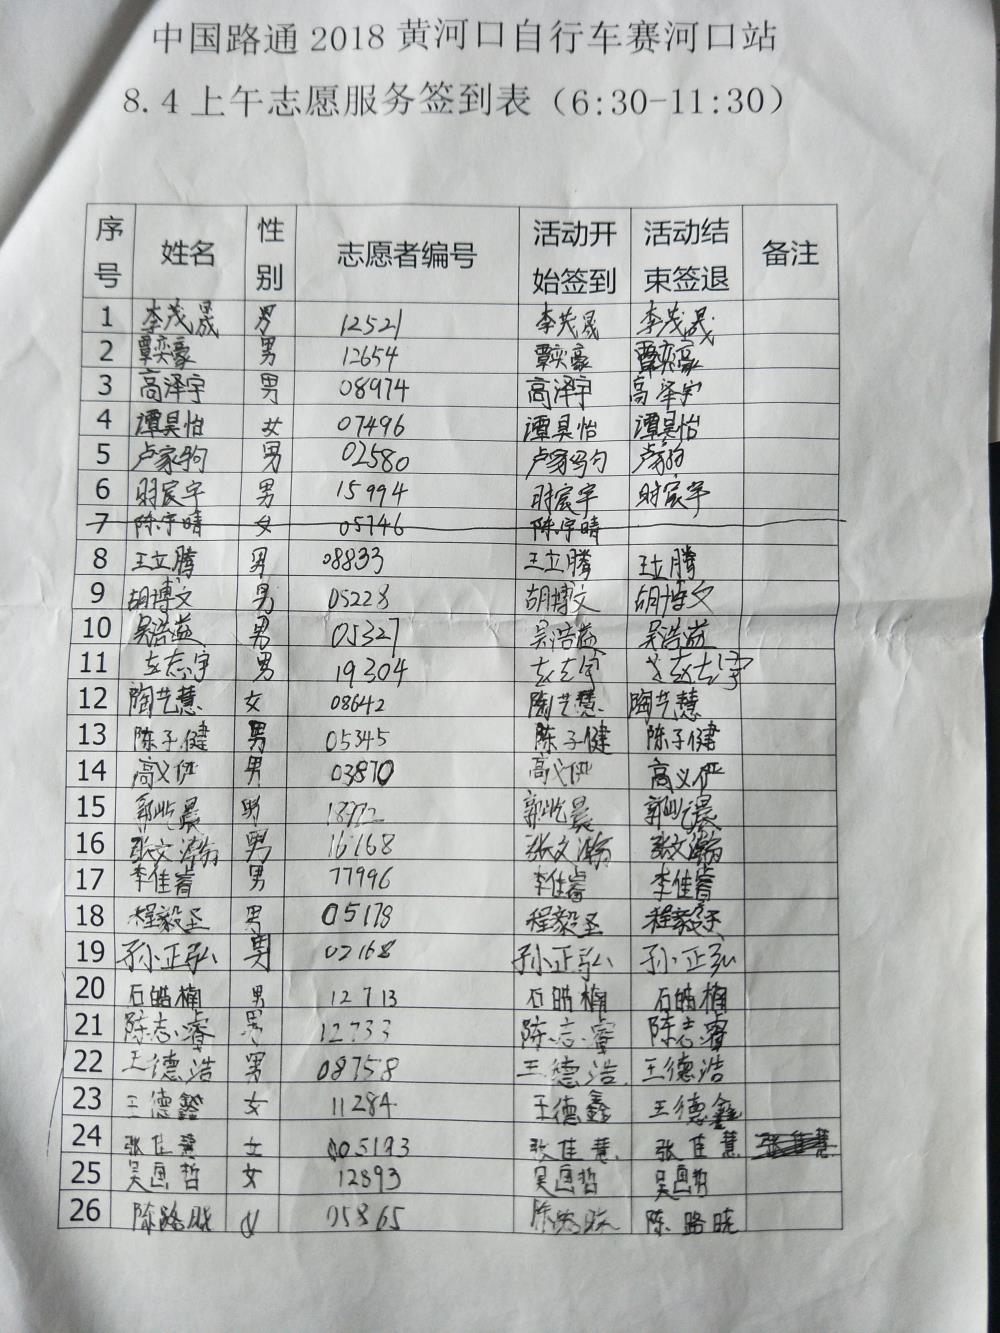 中国路通2018黄河口自行车赛河口站
8.4上午志愿服务签到表（6:30-11:30）
序号 姓名 性别 志愿者编号 活动开始签到 活动结束签退 备注
1 李茂晟 男 12521 李茂晟 李茂晟
2 覃奕豪 男 12654 覃奕豪 覃奕豪
3 高泽宇 男 08974 高泽宇 高泽宇
4 谭昊怡 女 07496 谭昊怡 谭昊怡
5 卢家驹 男 02580 卢家驹 卢家驹
6 时宸宇 男 15994 时宸宇 时宸宇
7 陈宇晴 女 05746 陈宇晴
8 王立腾 男 08833 王立腾 王立腾
9 胡博文 男 05228 胡博文 胡博文
10 吴浩益 男 05327 吴浩益 吴浩益
11 左志宇 男 19304 左志宇 左志宇
12 陶艺慧 女 08642 陶艺慧 陶艺慧
13 陈子健 男 05345 陈子健 陈子健
14 高义俨 男 03870 高义俨 高义俨
15 郭屹晨 男 郭屹晨 郭屹晨
16 张文瀚 男 16168 张文瀚 张文瀚
17 李佳睿 男 77996 李佳睿 李佳睿
18 程毅圣 男 05178 程毅圣 程毅圣
19 孙正弘 男 02168 孙正弘 孙正弘
20 石皓楠 男 12713 石皓楠 石皓楠
21 陈志睿 男 12733 陈志睿 陈志睿
22 王德浩 男 08758 王德浩 王德浩
23 王德鑫 女 11284 王德鑫 王德鑫
24 张佳慧 女 005193 张佳慧 张佳慧
25 吴画哲 女 12893 吴画哲 吴画哲
26 陈路晓 女 05865 陈路晓 陈路晓